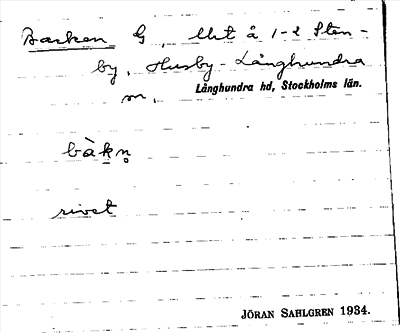 Backen G, Utit å 1-2 Sten-
by, Husby-Långhundra
sn,
Långhundra hd, Stockholms län.
bàkn̥
rivet
JÖRAN SAHLGREN 1934.